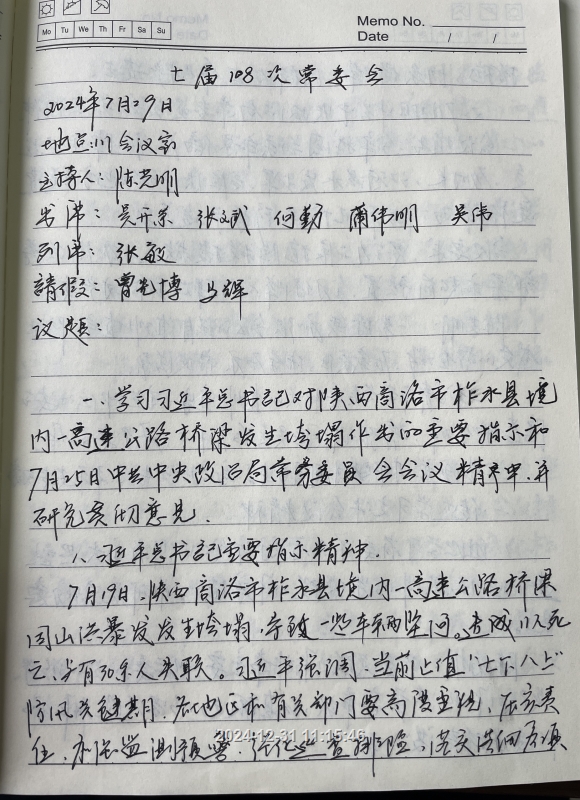 Memo No.
Mo Tu We Th Fr Sa Su
Date / /
七届108次常委会
2024年7月29日
地点:川会议室
主持人:陈光明
出席:吴开荣 张文武 何勤 蔺伟明 吴伟
列席:张敏
請假:曹先博 马辉
议题:
一、学习习近平总书记对陕西商洛市柞水县境
内一高速公路桥梁发生垮塌作出的重要指示和
7月25日中共中央政治局常务委员会会议精神,并
研究贯彻意见.
1、习近平总书记重要指示精神.
7月19日,陕西商洛市柞水县境内一高速公路桥梁
因山洪暴发发生垮塌,导致一些车辆坠河。造成,11人死
亡,另有30余人失联。习近平强调,当前正值"七下八上"
防汛关键期,各地区和有关部门要高度重视,压实责
任,加强监测预警,强化巡查排险,落实洪细各项
2024-12-31 11:15:46